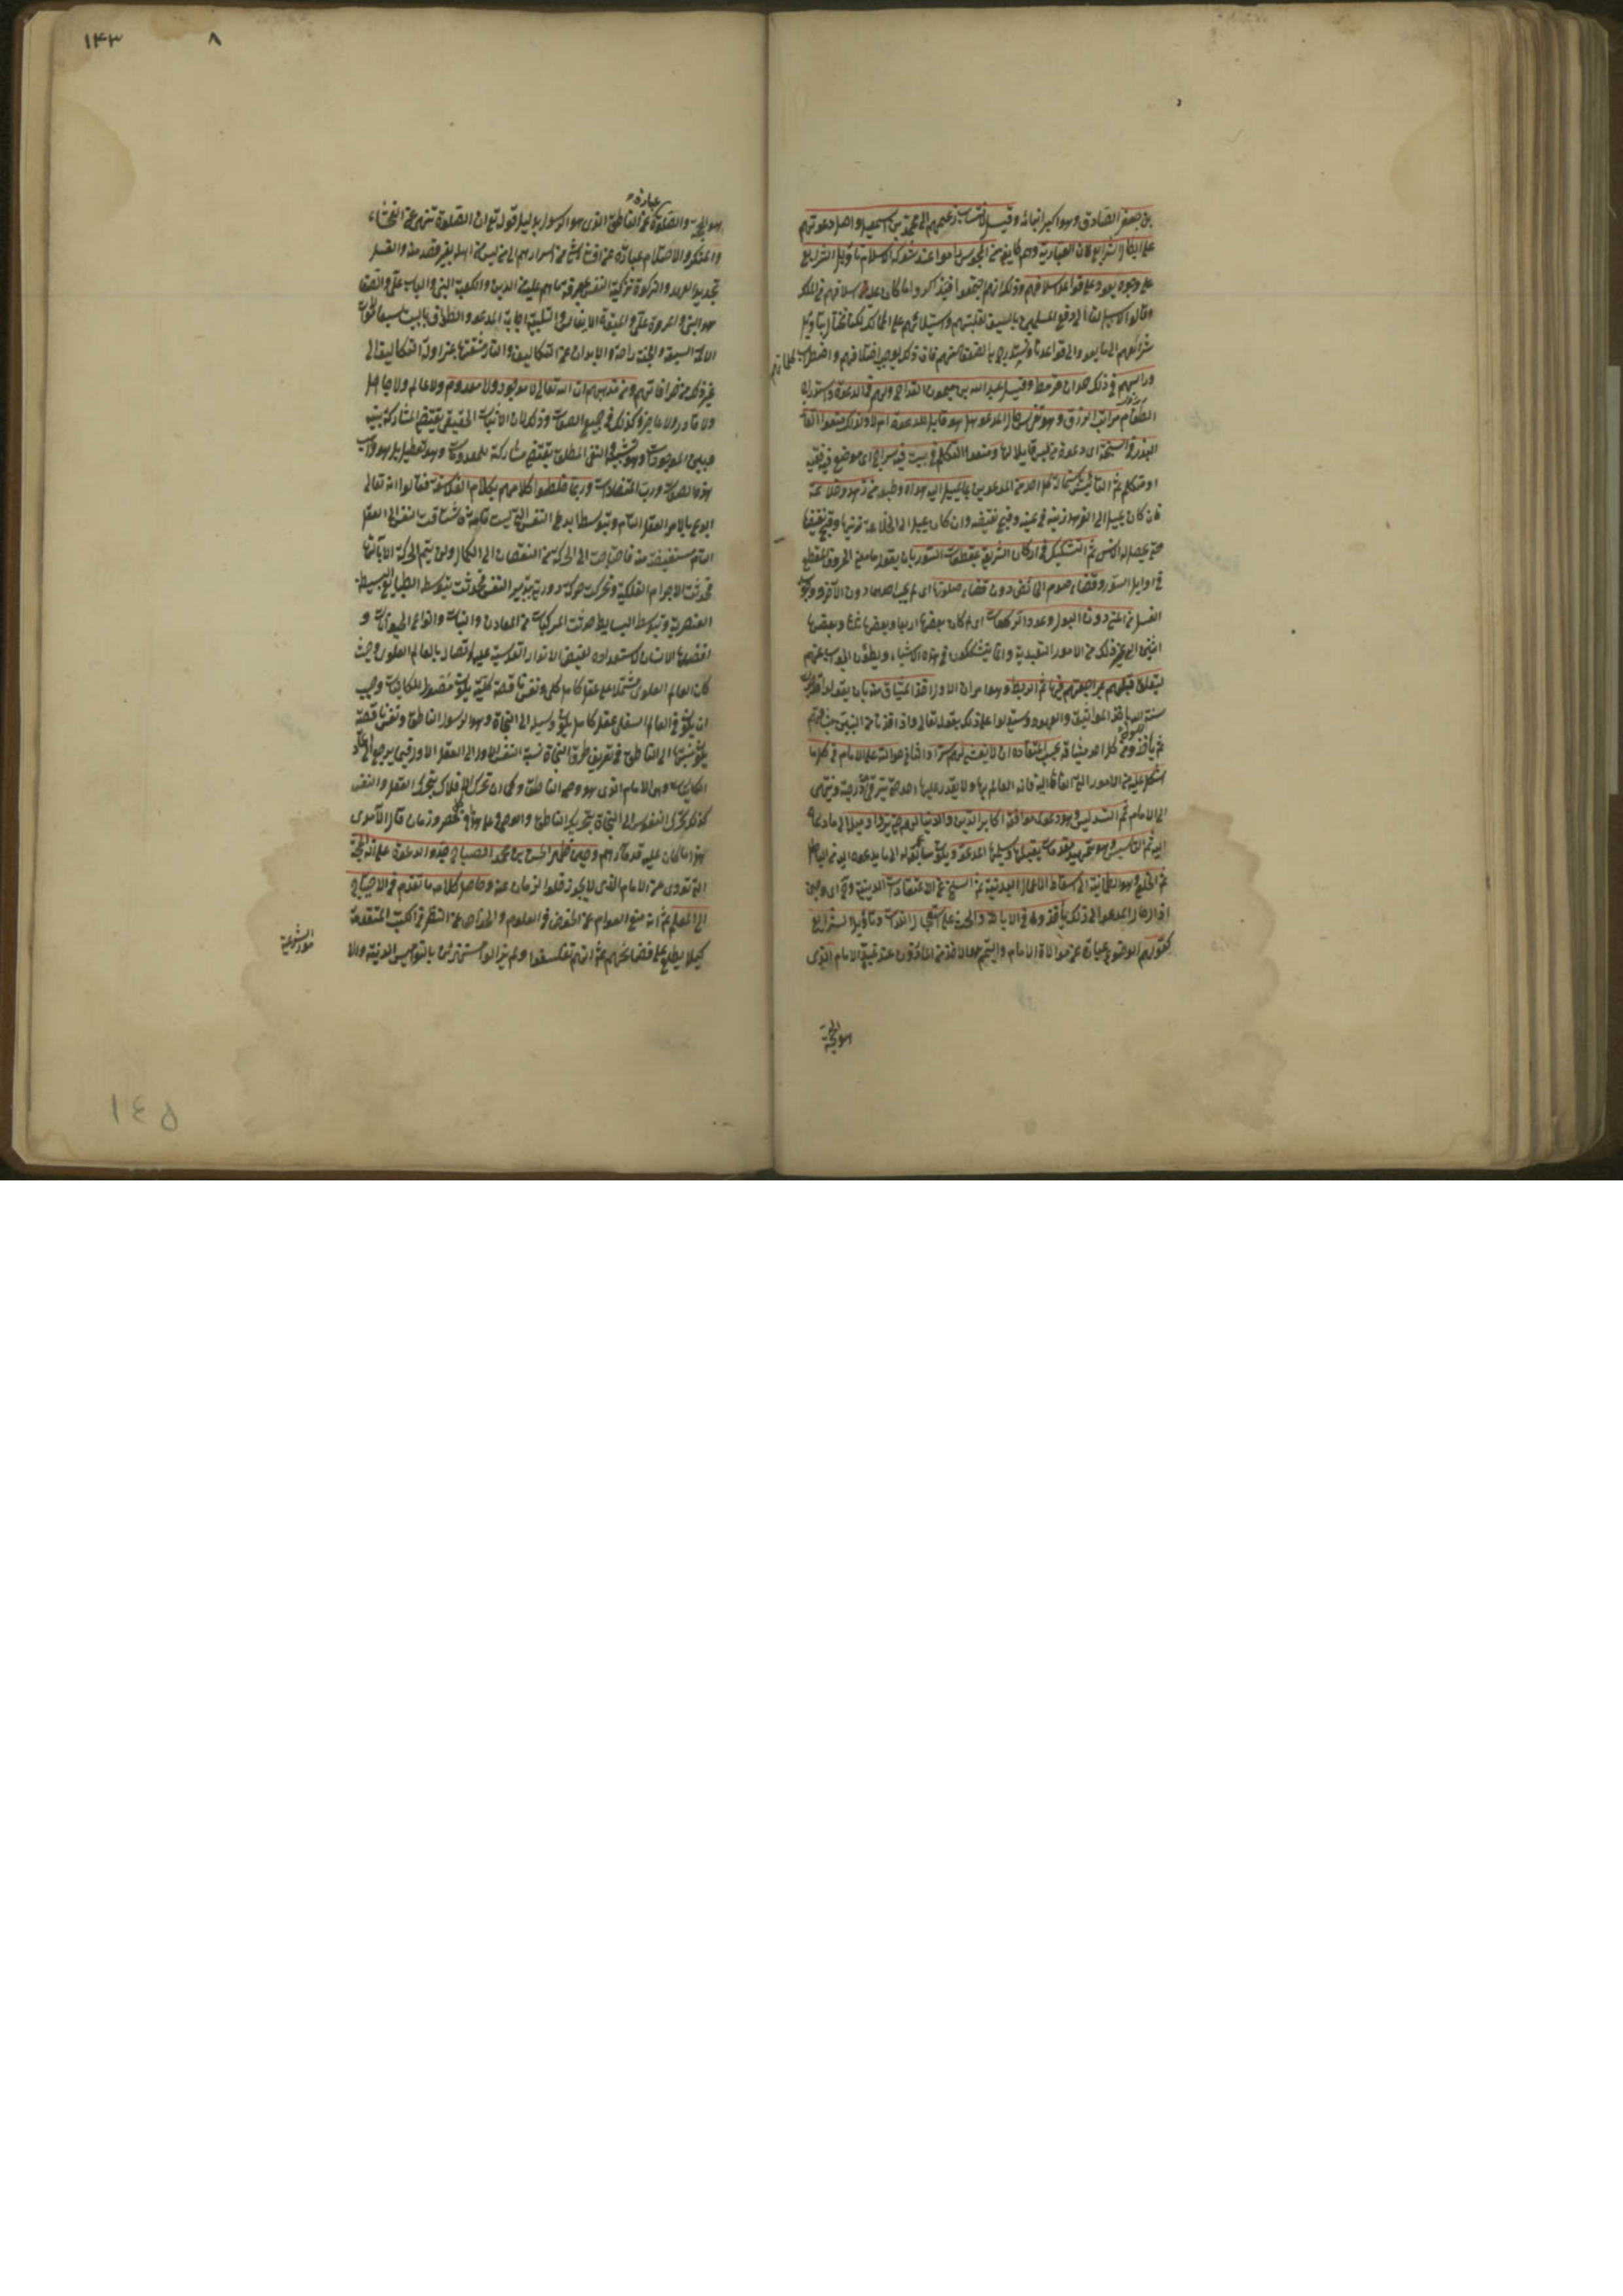 بن جعفر الصادق وهو اكبر ابنائه وقيل لانتساب زعيمهم الى محمد بن اسمعيل واصل دعوتهم
على ابطال الشرايع لان الغيارية وهم طايفة من المجوس راموا عند شوكة الاسلام تاويل الشرايع
على وجوه يعود على قواعد اسلافهم وذلك انهم اجتمعوا فتذاكروا ما كان عليه اسلافهم من الملك
وقالوا لا سبيل لنا الى دفع المسلمين بالسيف لغلبتهم واستيلائهم على الممالك لكنا نحتال بتاويل
شرائعهم الى ما يعود الى قواعدنا ونستدرج به الضعفاء منهم فان ذلك يوجب اختلافهم واضطراب كلماتهم
وراسهم في ذلك حمدان قرمط وقيل عبد الله بن ميمون القداح ولهم في الدعوة واستدراج
الطغام مراتب الزرق وهو تفرس حال المدعو هل هو قابل للدعوة ام لا ولذلك منعوا القاء
البذر في السبخة اى دعوة من ليس قابلا لها ومنعوا التكلم في بيت فيه سراج اى موضع فيه فقيه
او متكلم ثم التأنيس باستمالة كل احد من المدعوين بما يميل اليه هواه وطبعه من زهد وخلاعة
فان كان يميل الى الزهد زينه في عينه وقبح نقيضه وان كان يميل الى الخلاعة زينها وقبح نقيضها
حتى يحصل له الانس ثم التشكيك في اركان الشريعة بمقطعات السور بان يقول ما معنى الحروف المقطعة
في اوايل السور وقضاء صوم الحائض دون قضاء صلوتها اى لم يجب احدهما دون الآخر ووجوب
الغسل من المنى دون البول وعدد الركعات اى لم كان بعضها اربعا وبعضها ثلثا وبعضها
اثنين الى غير ذلك من الامور التعبدية وانما يشككون في هذه الاشياء ويطوون الجواب عنهم
ليتعلق قلبهم بمراجعتهم فيها ثم الربط وهو امران الاول اخذ الميثاق منه بان يقولوا قد جرت
سنة الله باخذ المواثيق والعهود ويستدلوا على ذلك بقوله تعالى واذ اخذنا من النبيين ميثاقهم
ثم يأخذوا من كل احد ميثاقه بحسب اعتقاده ان لا يفشى لهم سرا والثاني حوالته على الامام في حل ما
اشكل عليه من الامور التي القاها اليه فانه العالم بها ولا يقدر عليها احد حتى يترقى من درجته وينتهى
الى الامام ثم التدليس وهو دعوى موافقة اكابر الدين والدنيا لهم حتى يزداد ميله الى ما دعاه
اليه ثم التاسيس وهو تمهيد مقدمات يقبلها ويسلمها المدعو ويكون سايقة له الى ما يدعوه اليه من الباطل
ثم الخلع وهو الطمانية الى اسقاط الاعمال البدنية ثم السلخ عن الاعتقادات الدينية وح اى وحين
اذ آل حال المدعو الى ذلك يأخذون في الاباحة والحث على استعجال اللذات وتأويل الشرايع
كقولهم الوضوء عبارة عن موالاة الامام والتيمم هو الاخذ من المأذون عند غيبة الامام الذى
هو الحجة
١٤٣ ٨
عبارة
هو الحجة والصلوة عن الناطق الذى هو الرسول بدليل قوله تعالى ان الصلوة تنهى عن الفحشاء
والمنكر والاحتلام عبارة عن افشاء شئ من اسرارهم الى من ليس من اهله بغير قصد منه والغسل
تجديد العهد والزكوة تزكية النفس بمعرفة ما هم عليه من الدين والكعبة النبى والباب على والصفا
هو النبى والمروة على والميقات الايناس والتلبية اجابة المدعو والطواف بالبيت سبعا موالاة
الائمة السبعة والجنة راحة الابدان عن التكاليف والنار مشقتها بمزاولة التكاليف الى
غير ذلك من خرافاتهم ومن مذهبهم ان الله تعالى لا موجود ولا معدوم ولا عالم ولا جاهل
ولا قادر ولا عاجز وكذلك في جميع الصفات وذلك لان الاثبات الحقيقى يقتضى المشاركة بينه
وبين الموجودات وهو تشبيه والنفى المطلق يقتضى مشاركة للمعدومات وهو تعطيل بل هو واهب
هذه الصفات ورب المتضادات وربما خلطوا كلامهم بكلام الفلاسفة فقالوا انه تعالى
ابدع بالامر العقل التام وبتوسطه ابدع النفس التي ليست تامة فاشتاقت النفس الى العقل
التام مستفيضة منه فاحتاجت الى الحركة من النقصان الى الكمال ولن يتم الحركة الا بآلتها
فحدثت الاجرام الفلكية وتحركت حركة دورية بتدبير النفس فحدثت بتوسط الطبايع البسيطة
العنصرية وبتوسط البسايط حدثت المركبات من المعادن والنبات وانواع الحيوانات و
افضلها الانسان لاستعداده لفيض الانوار القدسية عليه واتصاله بالعالم العلوى وحيث
كان العالم العلوى مشتملا على عقل كامل كلى ونفس ناقصة كلية يكون مصدرا للكاينات وجب
ان يكون في العالم السفلى عقل كامل يكون وسيلة الى النجاة وهو الرسول الناطق ونفس ناقصة
يكون نسبتها الى الناطق في تعريف طرق النجاة نسبة النفس الاولى الى العقل الاول فيما يرجع الى ايجاد
الكاينات وهى الامام الذى هو وصى الناطق وكما ان تحرك الافلاك بتحريك العقل والنفس
كذلك تحرك النفوس الى النجاة بتحريك الناطق والوصى وعلى هذا في كل عصر وزمان قال الآمدى
هذا ما كان عليه قدماؤهم وحين ظهر الحسن بن محمد الصباح جدد الدعوة على انه الحجة
الذى يؤدى عن الامام الذى لا يجوز خلو الزمان عنه وحاصل كلامه ما تقدم في الاحتياج
الى المعلم ثم انه منع العوام عن الخوض في العلوم والخواص عن النظر في الكتب المتقدمة
كيلا يطلع على فضائحهم ثم انهم تفلسفوا ولم يزالوا مستهزئين بالنواميس الدينية والا
مور الشرعية
١٤٥